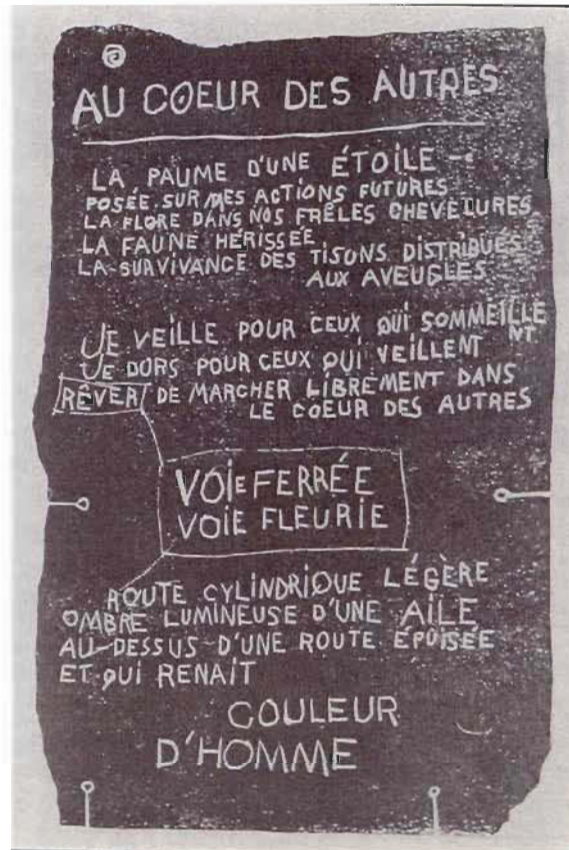 AU COEUR DES AUTRES
LA PAUME D'UNE ÉTOILE
POSÉE SUR MES ACTIONS FUTURES
LA FLORE DANS NOS FRÊLES CHEVELURES
LA FAUNE HÉRISSÉE
LA SURVIVANCE DES TISONS DISTRIBUÉS
AUX AVEUGLES
JE VEILLE POUR CEUX QUI SOMMEILLENT
JE DORS POUR CEUX QUI VEILLENT
RÊVER DE MARCHER LIBREMENT DANS
LE COEUR DES AUTRES
VOIE FERRÉE
VOIE FLEURIE
ROUTE CYLINDRIQUE LÉGÈRE
OMBRE LUMINEUSE D'UNE AILE
AU-DESSUS D'UNE ROUTE ÉPUISÉE
ET QUI RENAIT
COULEUR
D'HOMME